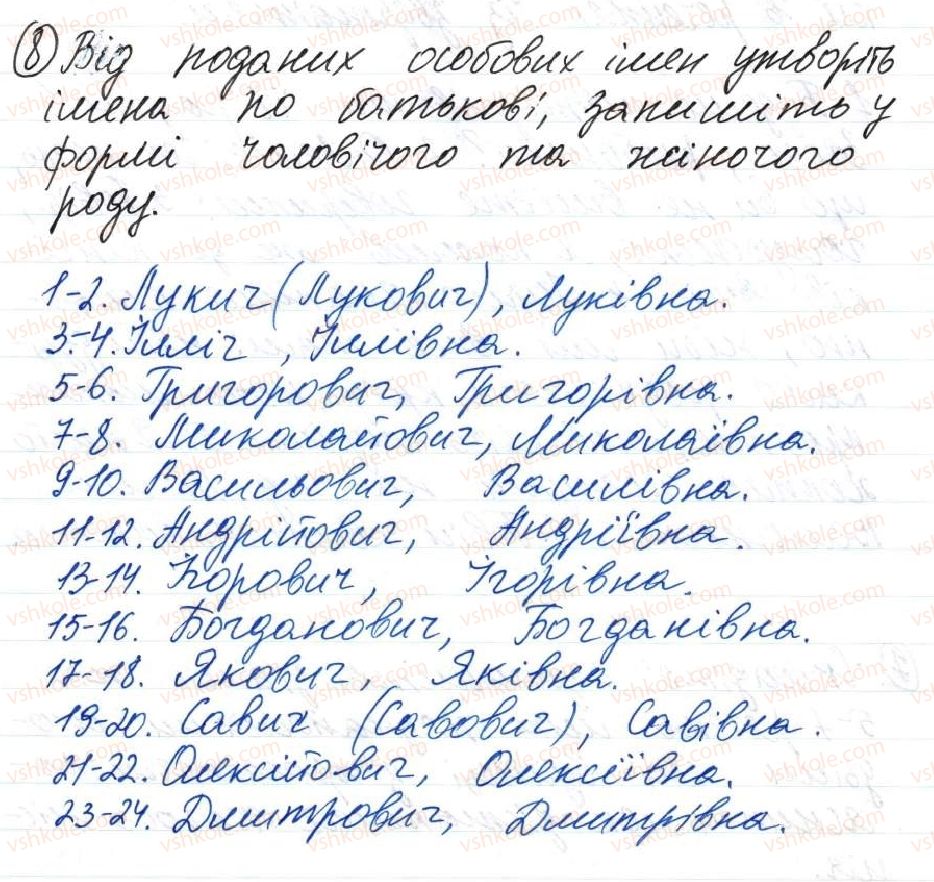 ⑧ Від поданих особових імен утворіть
імена по батькові, запишіть у
формі чоловічого та жіночого
роду.
1-2. Лукич (Лукович), Луківна.
3-4. Ілліч, Іллівна.
5-6. Григорович, Григорівна.
7-8. Миколайович, Миколаївна.
9-10. Васильович, Василівна.
11-12. Андрійович, Андріївна.
13-14. Ігорович, Ігорівна.
15-16. Богданович, Богданівна.
17-18. Якович, Яківна.
19-20. Савич (Савович), Савівна.
21-22. Олексійович, Олексіївна.
23-24. Дмитрович, Дмитрівна.